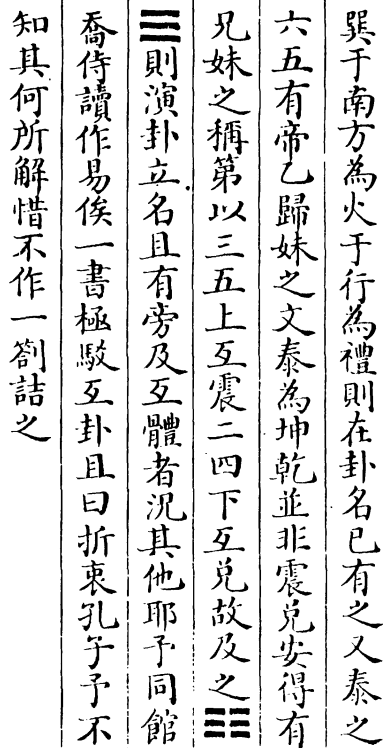 巽于南方為火于行為禮則在卦名已有之又泰之
六五有帝乙歸妹之文泰為坤乾並非震兌安得有
兄妹之稱第以三五上互震二四下互兌故及之☷
☰則演卦立名且有旁及互體者況其他耶予同館
喬侍讀作易俟一書極駁互卦且曰折衷孔子予不
知其何所解惜不作一劄詰之